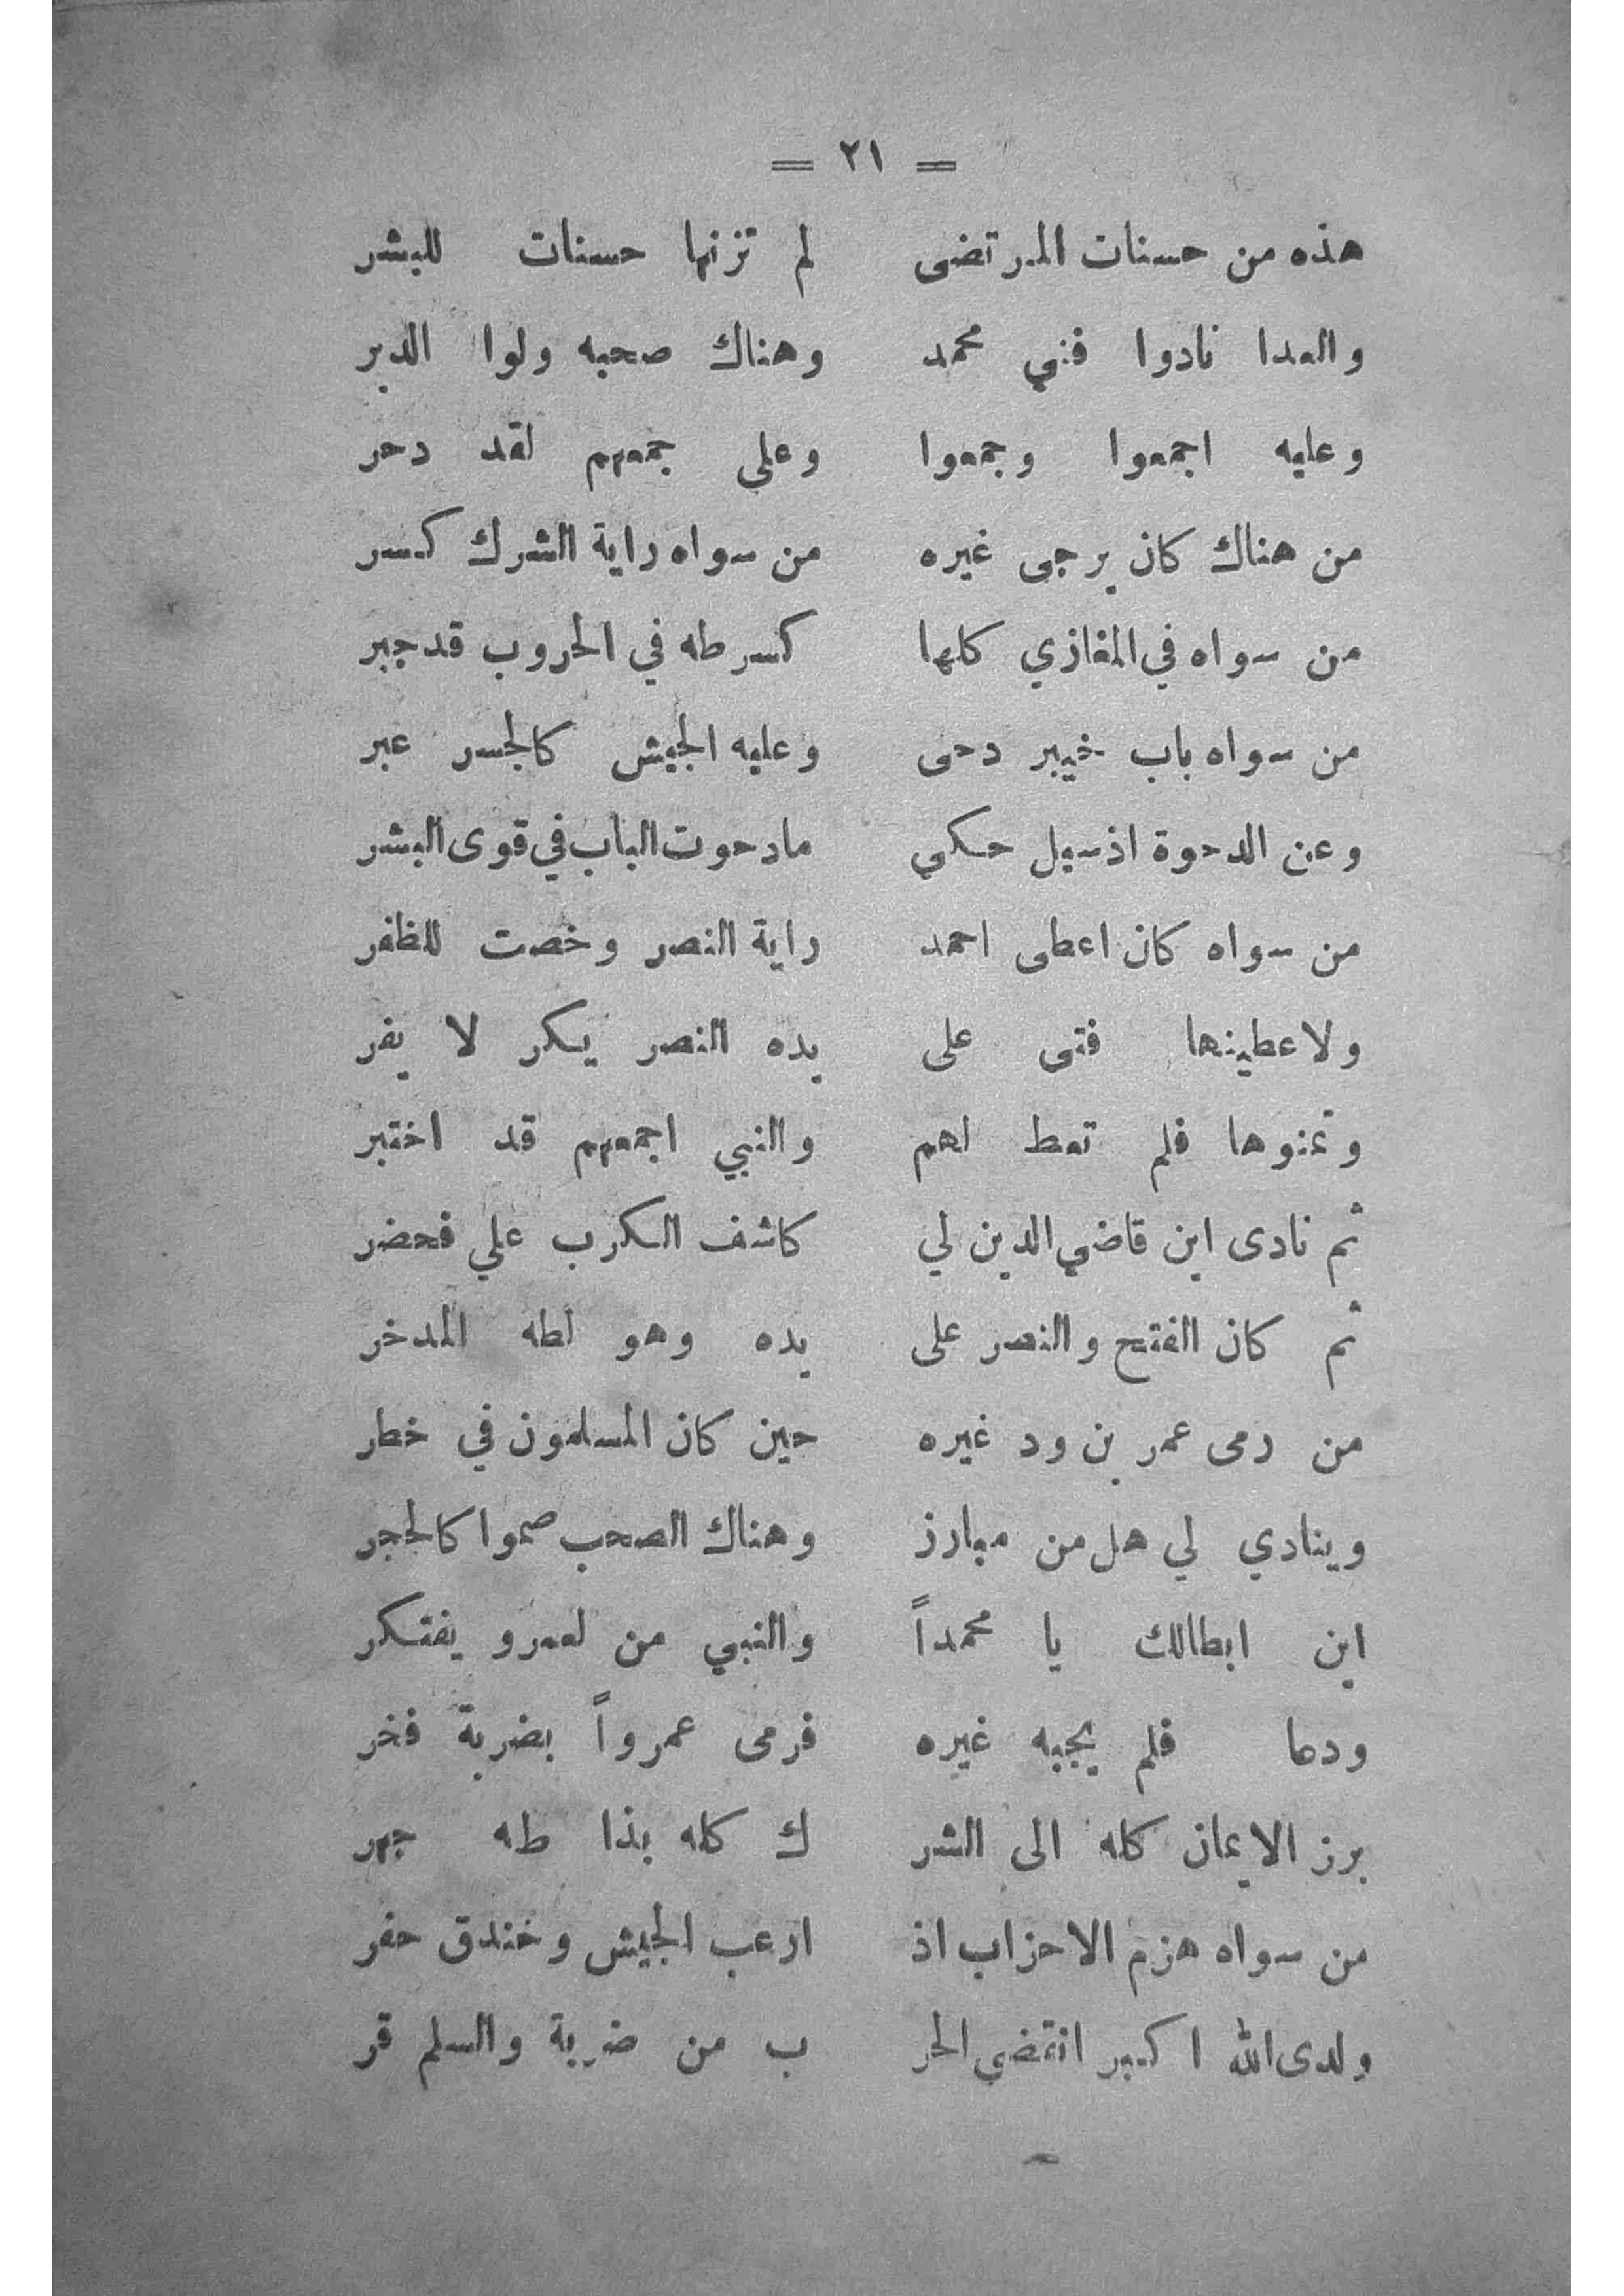 = ٢١ =
هذه من حسنات المرتضى لم تزنها حسنات للبشر
والعدا نادوا فني محمد وهناك صحبه ولوا الدبر
وعليه اجمعوا وجمعوا وعلى جمعهم لقد دحر
من هناك كان يرجى غيره من سواه راية الشرك كسر
من سواه في المغازي كلها كسر طه في الحروب قد جبر
من سواه باب خيبر دحى وعليه الجيش كالجسر عبر
وعن الدحوة اذ سيل حكى ما دحوت الباب في قوى البشر
من سواه كان اعطى احمد راية النصر وخصت للظفر
ولاعطينها فتى على يده النصر يكر لا يفر
وتمنوها فلم تعط لهم والنبي اجمعهم قد اختبر
ثم نادى اين قاضي الدين لي كاشف الكرب علي فحضر
ثم كان الفتح والنصر على يده وهو لطه المدخر
من رمى عمر بن ود غيره حين كان المسلمون في خطر
وينادي لي هل من مبارز وهناك الصحب صموا كالحجر
اين ابطالك يا محمداً والنبي من لعمرو يفتكر
ودعا فلم يجبه غيره فرمى عمرواً بضربة فخر
برز الايمان كله الى الشر ك كله بذا طه جهر
من سواه هزم الاحزاب اذ ارعب الجيش وخندق حفر
ولدى الله اكبر انتقضي الحر ب من ضربة والسلم قر